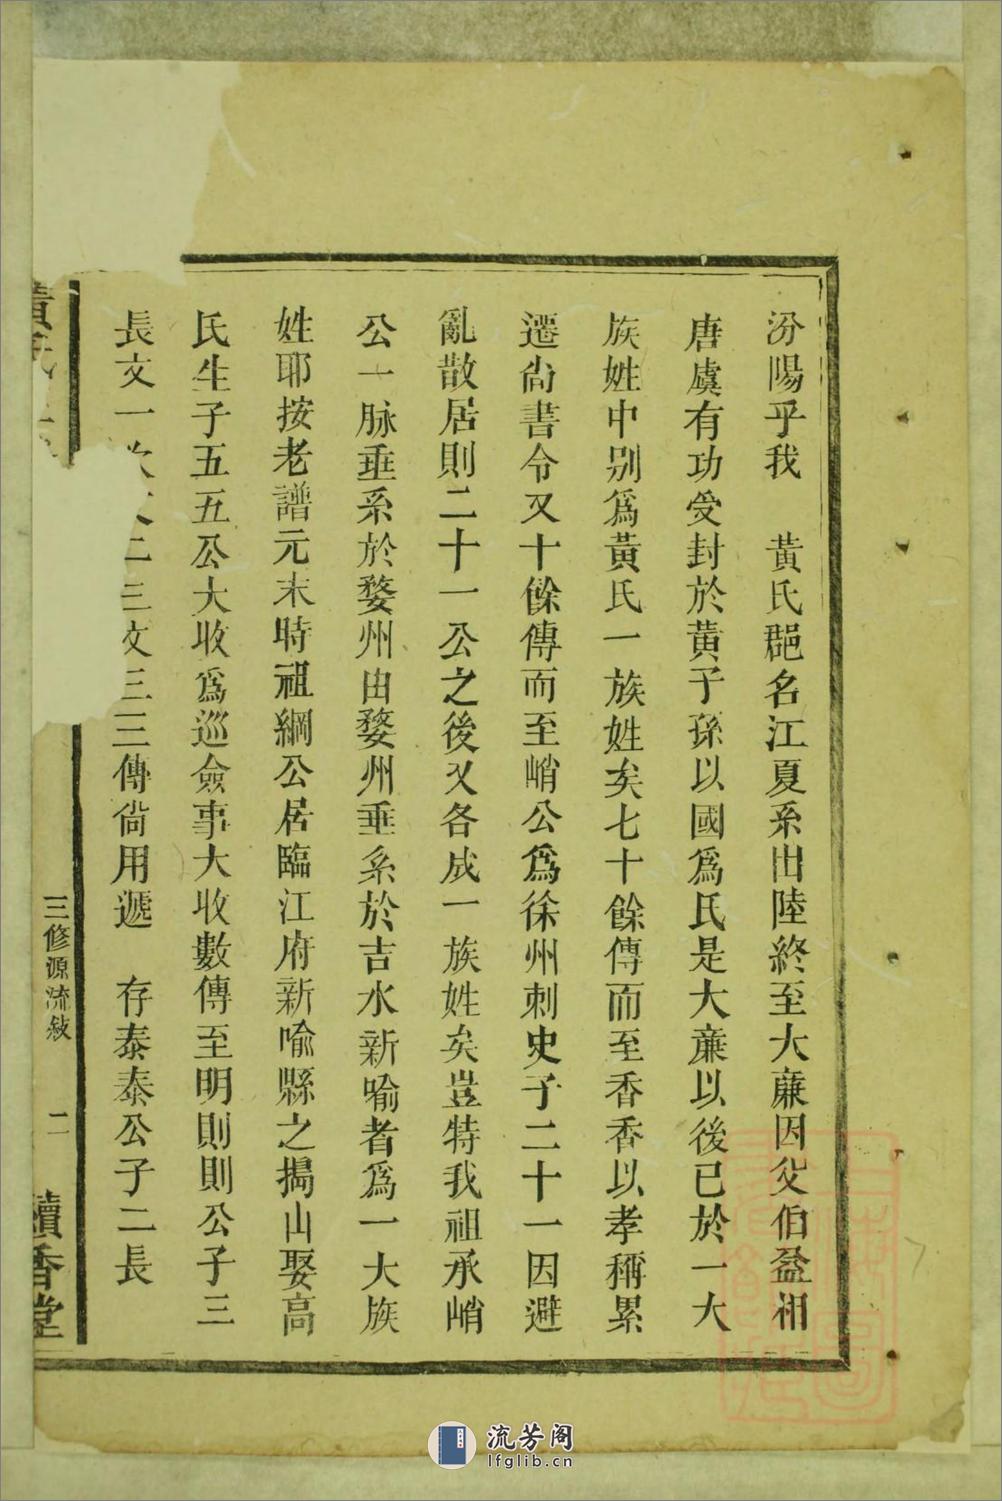 汾陽乎我　黃氏郡名江夏系出陸終至大亷因父伯益相
唐虞有功受封於黃子孫以國爲氏是大亷以後已於一大
族姓中别爲黃氏一族姓矣七十餘傳而至香香以孝稱累
遷尙書令又十餘傳而至峭公爲徐州刺史子二十一因避
亂散居則二十一公之後又各成一族姓矣豈特我祖承峭
公一脉垂系於婺州由婺州垂系於吉水新喻者爲一大族
姓耶按老譜元末時祖綱公居臨江府新喻縣之揭山娶高
氏生子五五公大收爲巡僉事大收數傳至明則則公子三
長文一次文二三文三三傳尙用遞　存泰泰公子二長
黃氏
三修源流敍
二
續香堂
流芳阁
lfglib.cn